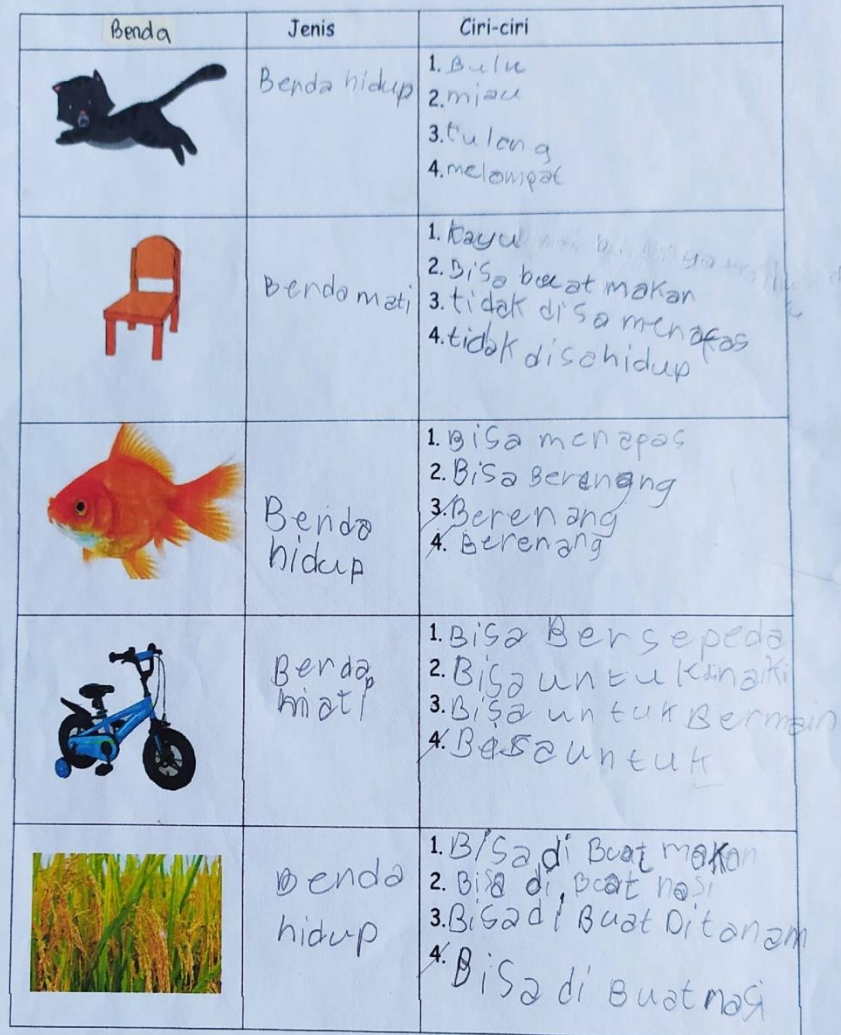 Benda Jenis Ciri-ciri
Benda hidup
1. Bulu
2. miau
3. tulang
4. melompat
Benda mati
1. kayu
2. Bisa buat makan
3. tidak disa menafas
4. tidak disa hidup
Benda
hidup
1. Bisa menapas
2. Bisa Berenang
3. Berenang
4. Berenang
Benda
mati
1. Bisa Bersepeda
2. Bisa untuk dinaiki
3. Bisa untuk Bermain
4. Bisa untuk
Benda
hidup
1. Bisa di Buat makan
2. Bisa di Buat nasi
3. Bisa di Buat Ditanam
4. Bisa di Buat nasi